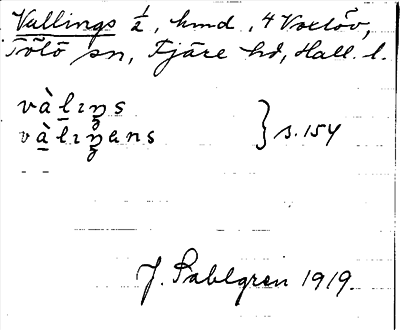 Vallings ½, hmd, 4 Voxlöv,
Tölö sn, Fjäre hd, Hall. l.
vàlıŋs
vàlıŋans } s. 154
J. Sahlgren 1919.